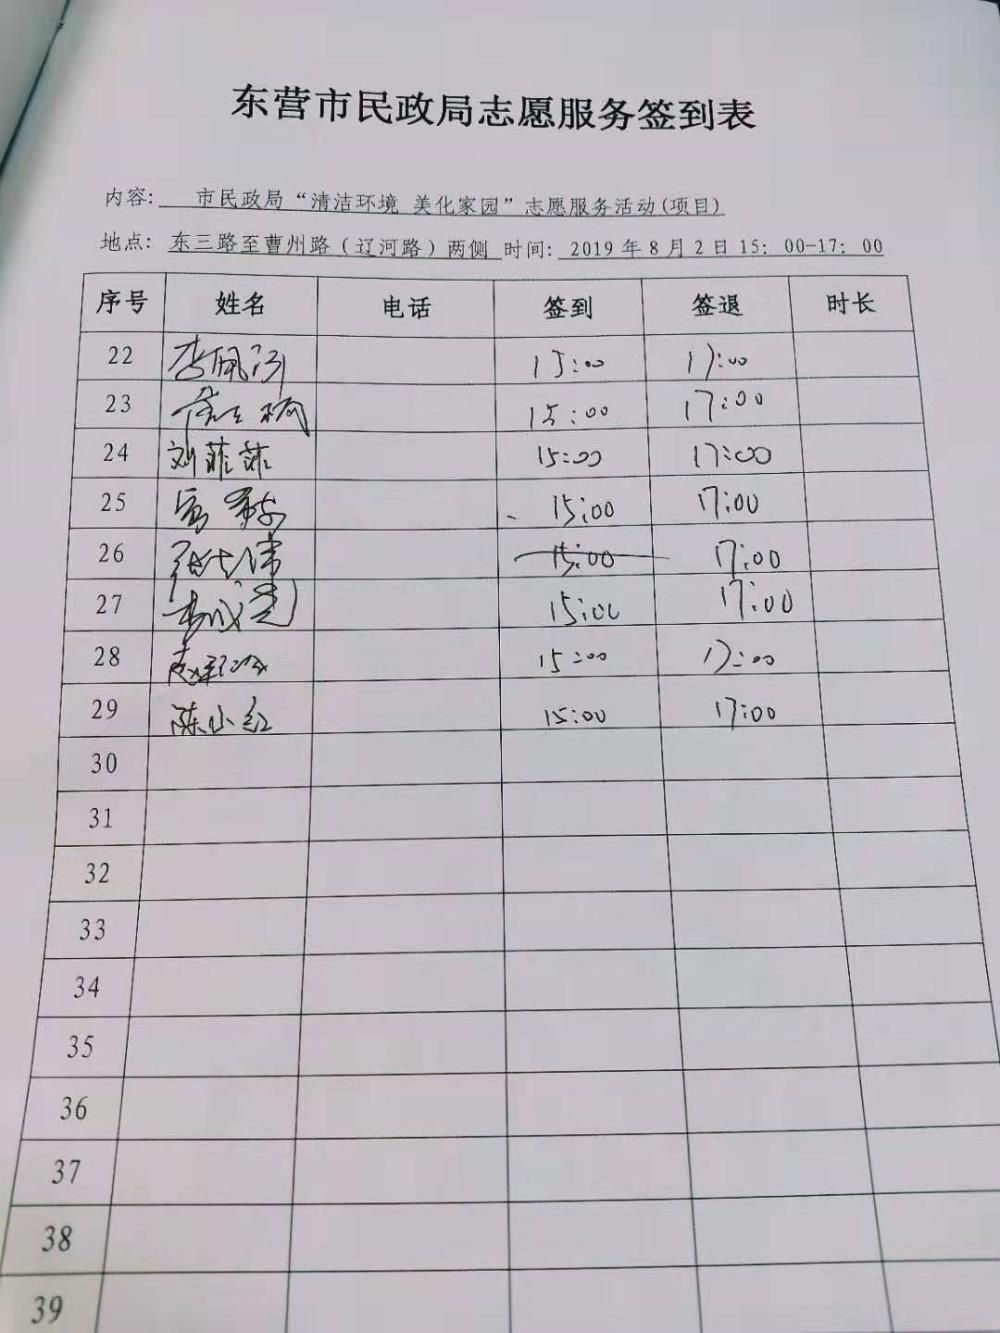 东营市民政局志愿服务签到表
内容: 市民政局“清洁环境 美化家园”志愿服务活动(项目)
地点: 东三路至曹州路(辽河路)两侧 时间: 2019年8月2日15: 00-17: 00
序号 姓名 电话 签到 签退 时长
22 15:00 17:00
23 15:00 17:00
24 刘菲菲 15:00 17:00
25 15:00 17:00
26 15:00 17:00
27 15:00 17:00
28 15:00 17:00
29 陈小红 15:00 17:00
30
31
32
33
34
35
36
37
38
39